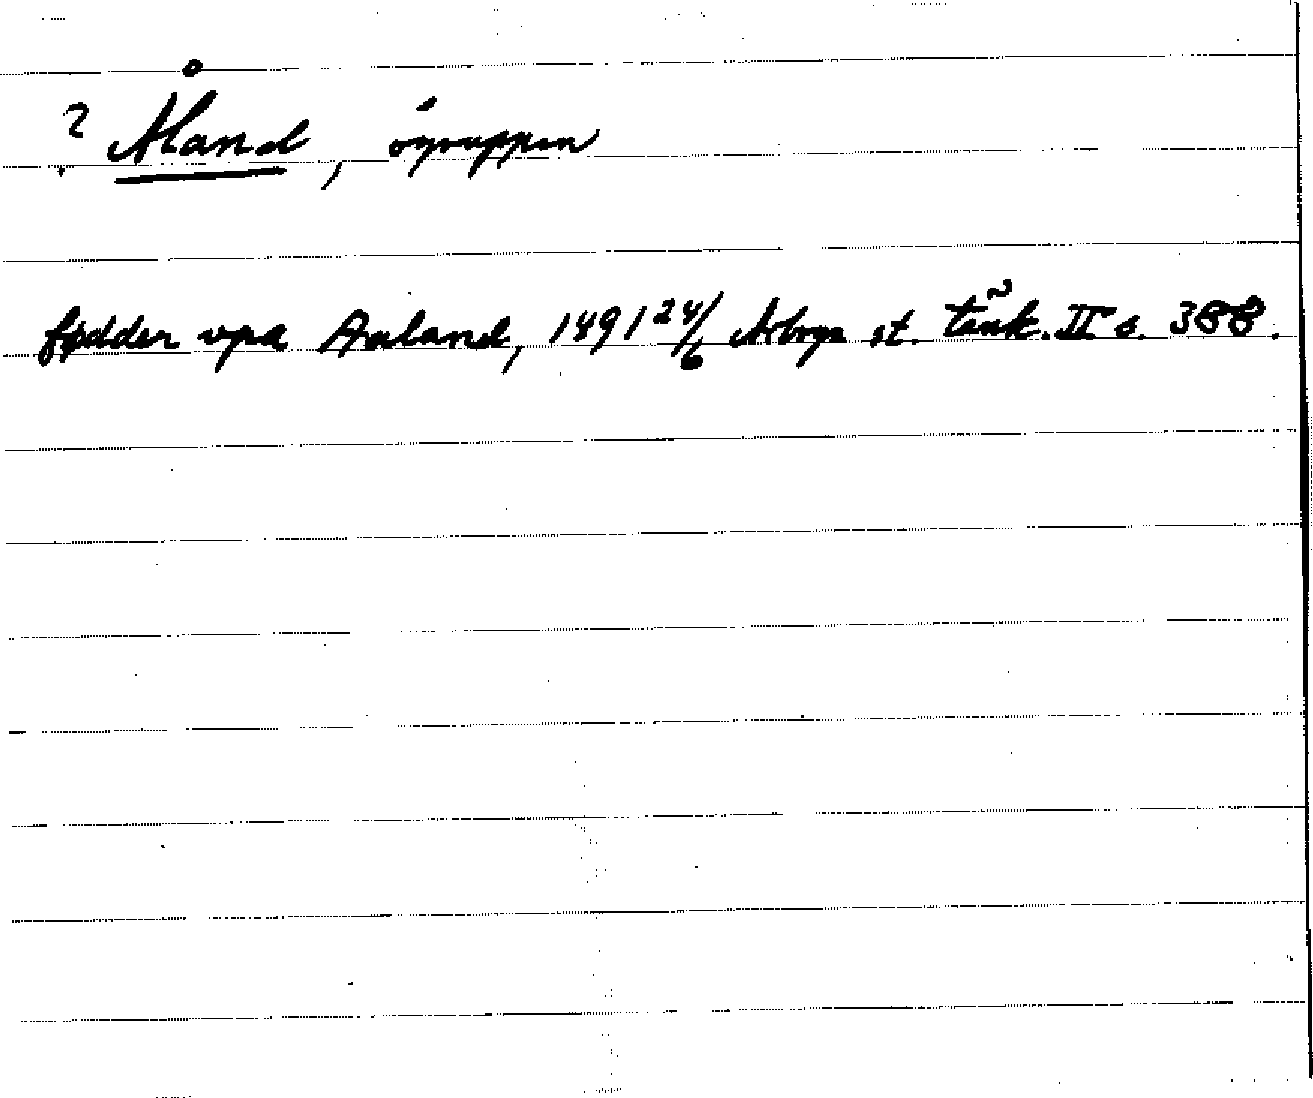 ? Åland, ögruppen
fødder vpa Aaland, 1491 24/6 Arboga st. tänk. II s. 388.